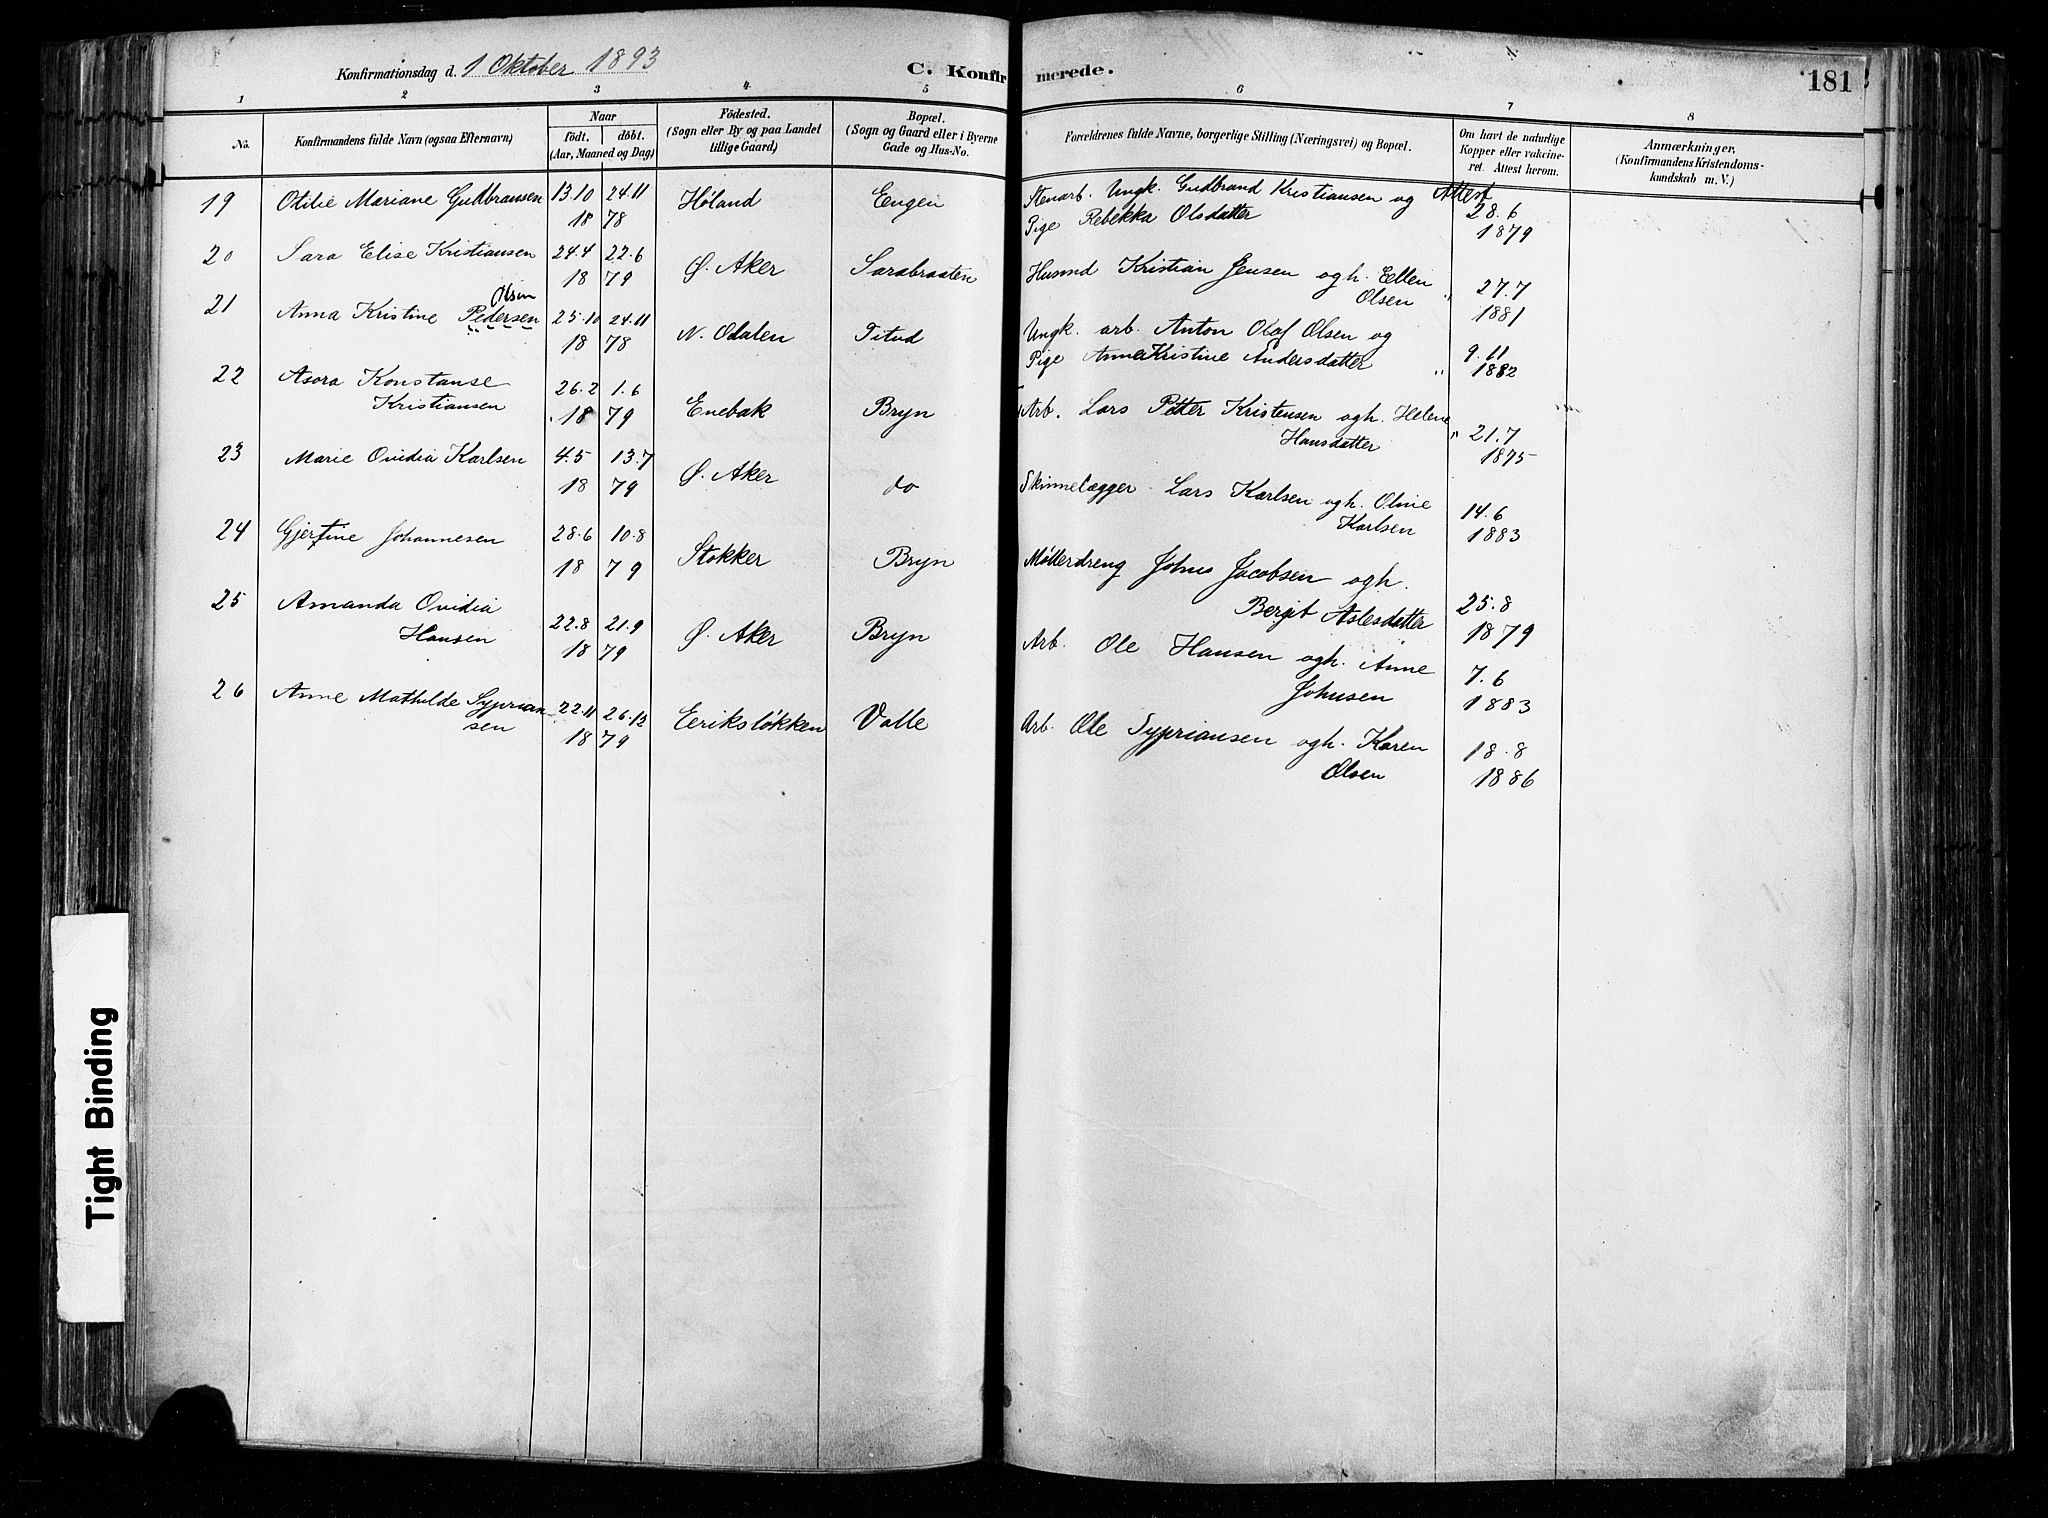 Konfirmationsdag d. 1 Oktober 1893
C. Konfirmerede.
181
1 2 3 4 5 6 7 8
No.
Konfirmandens fulde Navn (ogsaa Efternavn)
Naar
født. døbt.
(Aar, Maaned og Dag)
Fødested.
(Sogn eller By og paa Landet
tillige Gaard)
Bopæl.
(Sogn og Gaard eller i Byerne
Gade og Hus-No.
Forældrenes fulde Navne, borgerlige Stilling (Næringsvei) og Bopæl.
Om havt de naturlige
Kopper eller vakcine-
ret. Attest herom.
Anmærkninger,
(Konfirmandens Kristendoms-
kundskab m. V.)
19 Otilie Mariane Gudbransen 13.10 24.11 Høland Engen Stenarb. Ungk. Gudbrand Kristiansen og Attest
18 78 Pige Rebekka Olsdatter 28.6
1879
20 Sara Elise Kristiansen 24.4 22.6 Ø. Aker Sarabraaten Husmd Kristian Jensen ogh. Ellen
18 79 Olsen " 27.7
1881
Olsen
21 Anna Kristine Pedersen 25.10 24.11 N. Odalen Titud Ungk. arb. Anton Olaf Olsen og
18 78 Pige Anne Kristine Andersdatter " 9.11
1882
22 Asora Konstanse 26.2 1.6 Enebak Bryn Arb. Lars Petter Kristensen ogh. Helene
Kristiansen 18 79 Hansdatter " 21.7
1875
23 Marie Ovidia Karlsen 4.5 13.7 Ø. Aker do Skinnelægger Lars Karlsen ogh. Oline
18 79 Karlsen 14.6
1883
24 Gjertine Johannesen 28.6 10.8 Stokker Bryn Møllerdreng Johns Jacobsen ogh.
18 79 Bergit Aslesdatter 25.8
1879
25 Amanda Ovidia 22.8 21.9 Ø. Aker Bryn Arb. Ole Hansen ogh. Anne
Hansen 18 79 Johnsen 7.6
1883
26 Anne Mathilde Syprian- 22.11 26.12 Eeriksløkken Valle Arb. Ole Sypriansen ogh. Karen
sen 18 79 Olsen 18.8
1886
Tight Binding